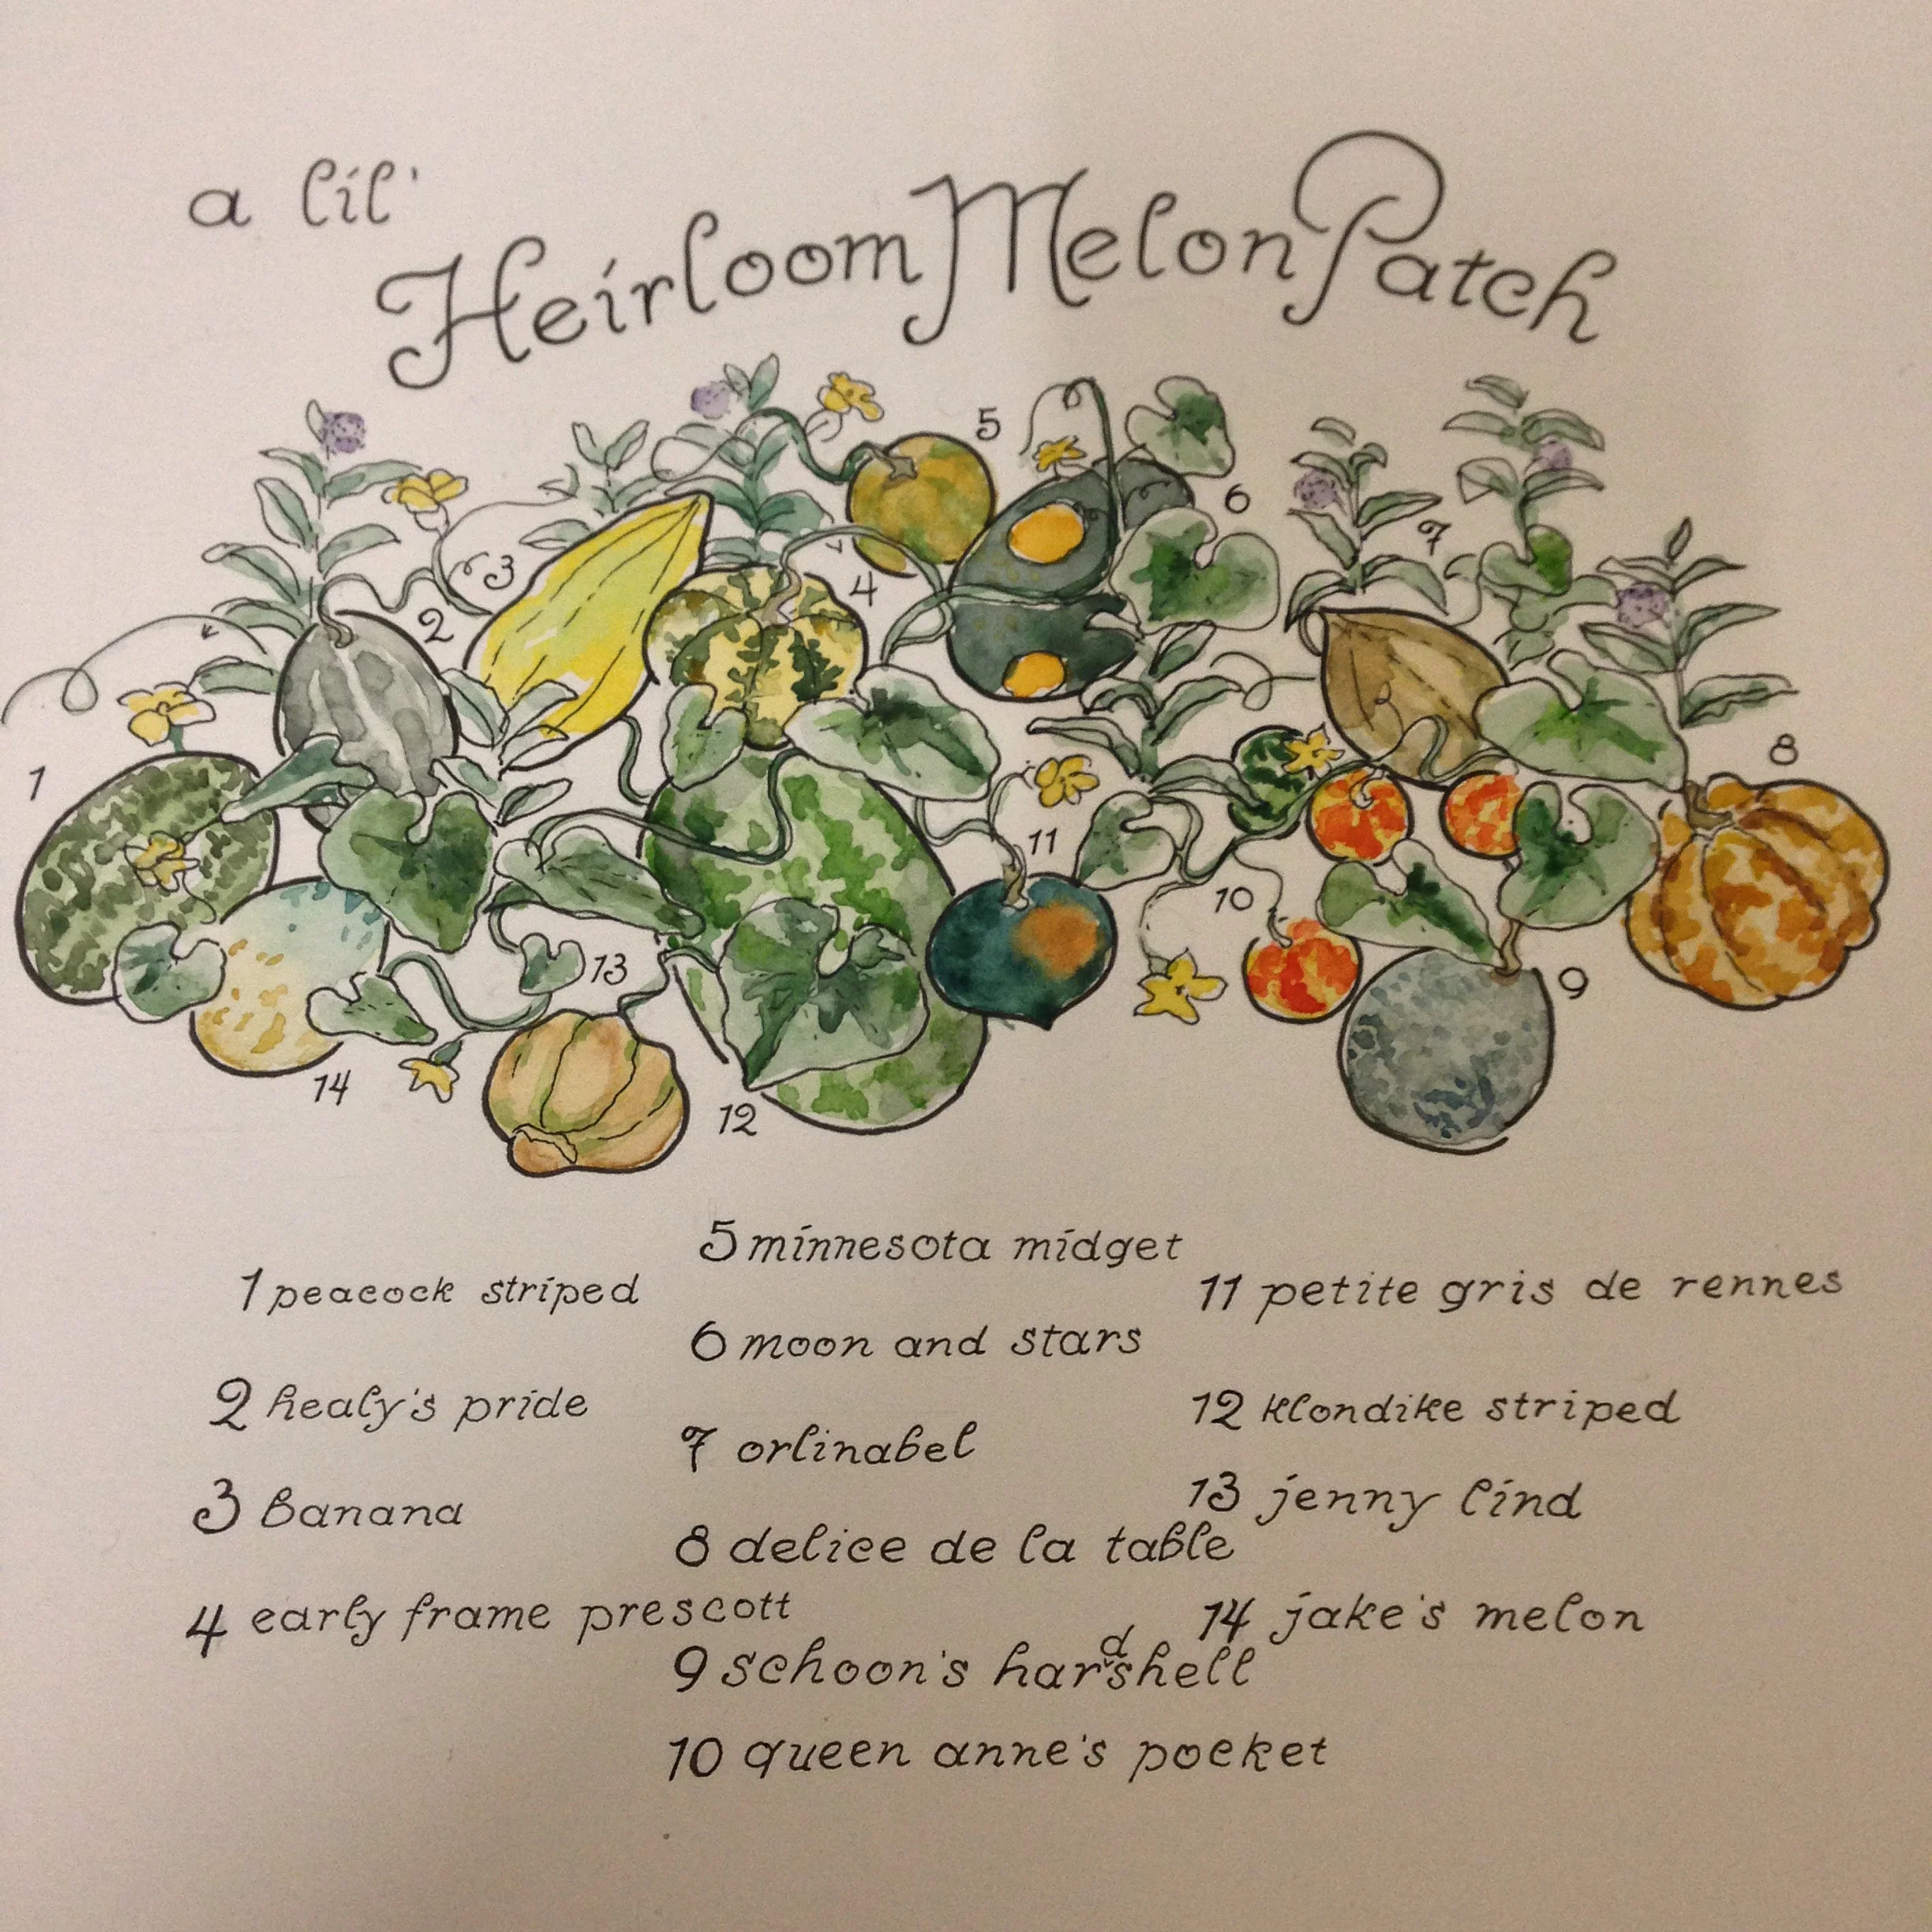 a lil'
Heirloom Melon Patch
1
2
3
4
5
6
7
8
9
10
11
12
13
14
1 peacock striped
2 healy's pride
3 banana
4 early frame prescott
5 minnesota midget
6 moon and stars
7 orlinabel
8 delice de la table
9 schoon's hardshell
10 queen anne's pocket
11 petite gris de rennes
12 klondike striped
13 jenny lind
14 jake's melon